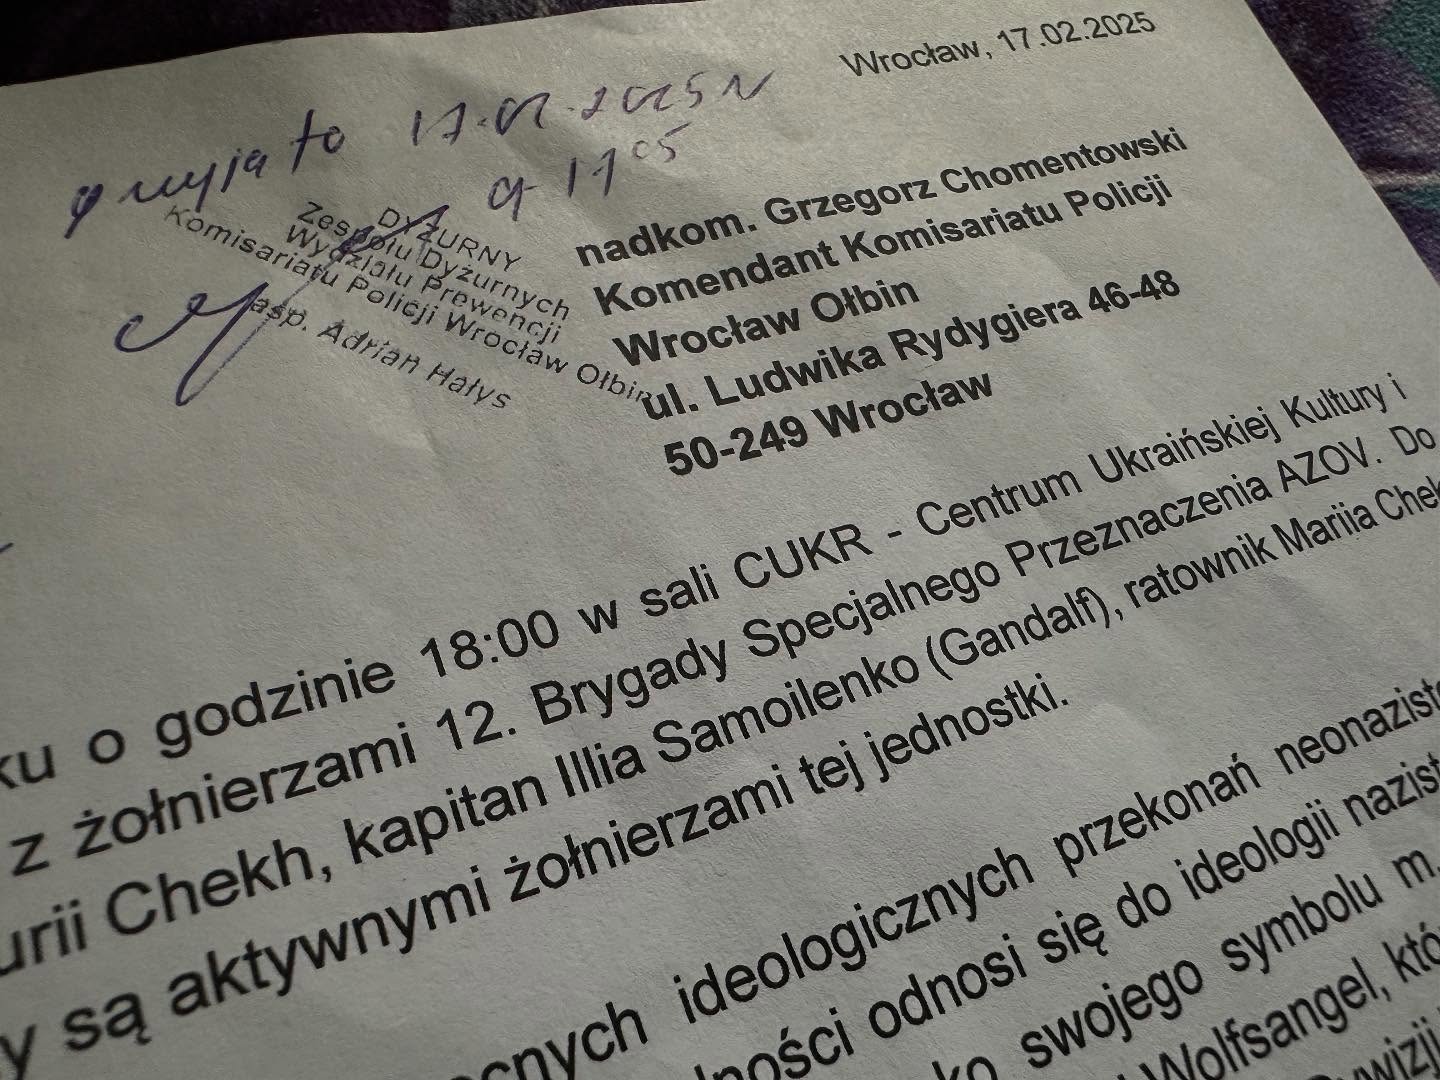 Wrocław, 17.02.2025
przyjąto 17.02.2025
g 11 05
DYŻURNY
Zespołu Dyżurnych
Wydziału Prewencji
Komisariatu Policji Wrocław Ołbin
asp. Adrian Hałys
nadkom. Grzegorz Chomentowski
Komendant Komisariatu Policji
Wrocław Ołbin
ul. Ludwika Rydygiera 46-48
50-249 Wrocław
ku o godzinie 18:00 w sali CUKR - Centrum Ukraińskiej Kultury i
z żołnierzami 12. Brygady Specjalnego Przeznaczenia AZOV. Do
urii Chekh, kapitan Illia Samoilenko (Gandalf), ratownik Mariia Chek
y są aktywnymi żołnierzami tej jednostki.
cnych ideologicznych przekonań neonazist
lności odnosi się do ideologii nazist
ko swojego symbolu m.
Wolfsangel, któ
ywizji